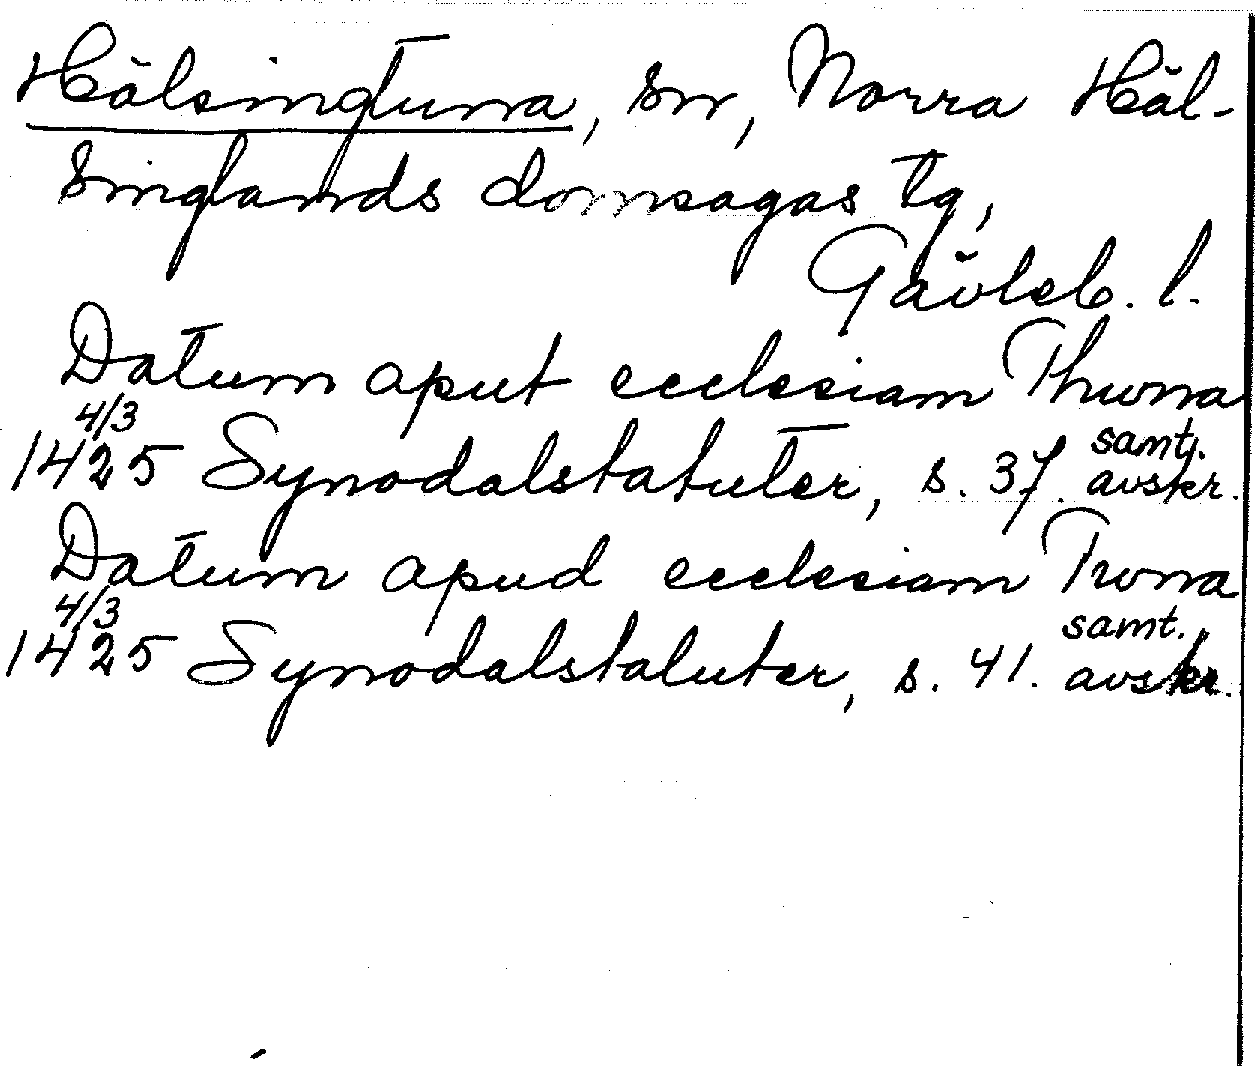 Hälsingtuna, sn, Norra Häl-
singlands domsagas tg,
Gävleb. l.
Datum aput ecclesiam Thuna
4/3 samt.
1425 Synodalstatuter, s. 37. avskr.
Datum apud ecclesiam Twna
4/3 samt.
1425 Synodalstatuter, s. 41. avskr.